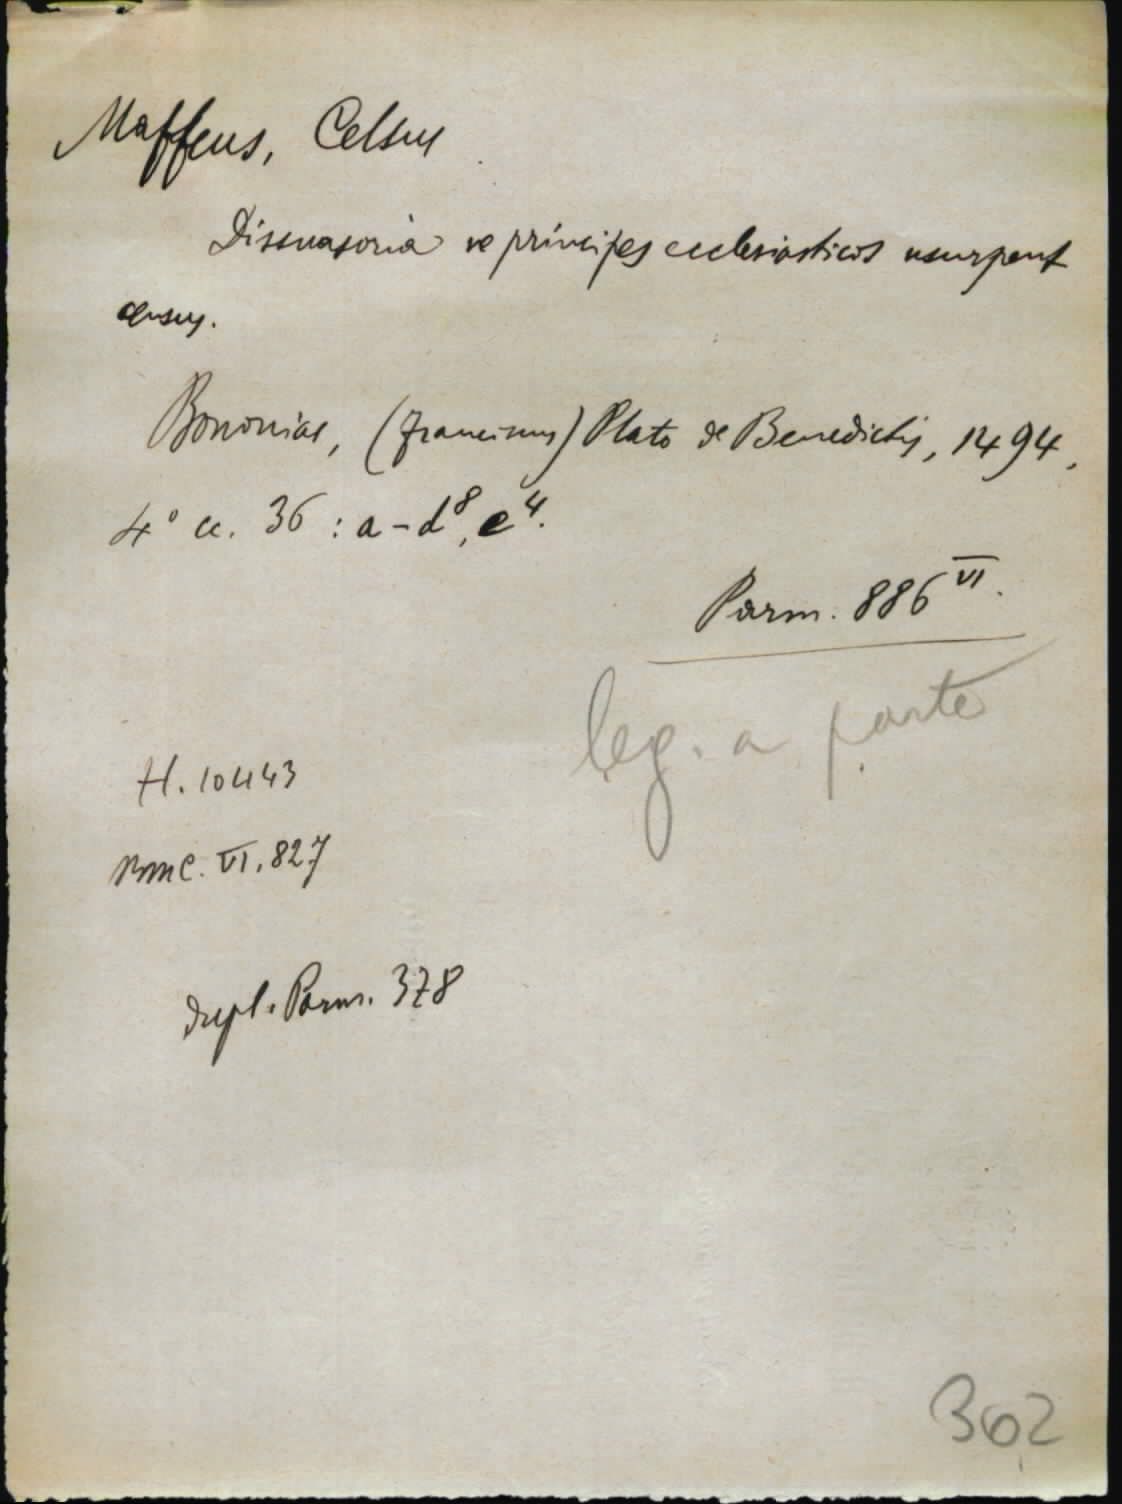 Maffeus, Celsus
Dissuasoria ne principes ecclesiasticos usurpent
census.
Bononiae, (Franciscus) Plato de Benedictis, 1494,
4° cc. 36 : a-d⁸, e⁴.
Parm. 886 VI.
leg. a parte
H. 10443
BMC. VI. 827
dupl. Parm. 378
302